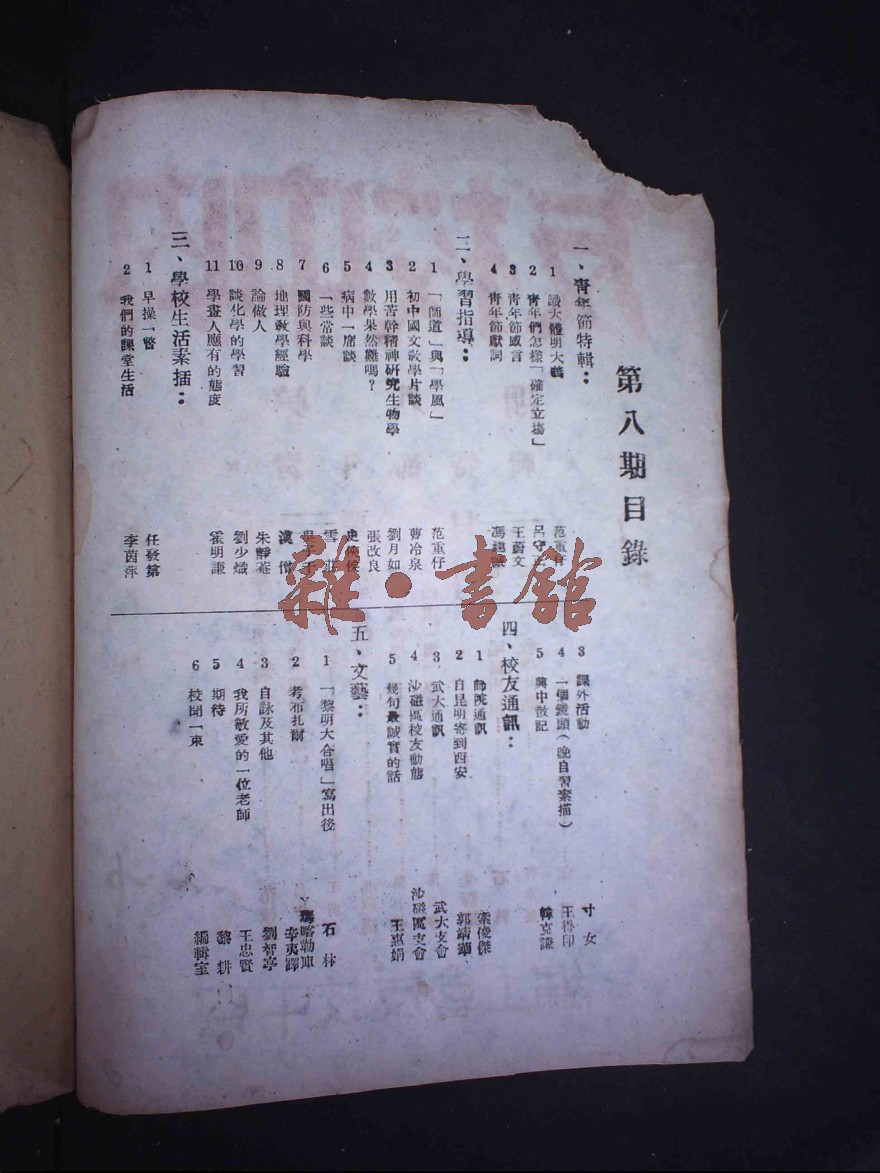 第八期目錄
一、青年節特輯：
1 識大體明大義 范重仔
2 青年們怎樣「確定立塲」 呂守正
3 青年節感言 王蔚文
4 青年節獻詞 馮
二、學習指導：
1 「師道」與「學風」 范重仔
2 初中國文敎學片談 蕢冷泉
3 用苦幹精神研究生物學 劉月如
4 數學果然難嗎？ 張改良
5 病中一席談
6 一些常談 雪莊
7 國防與科學
8 地理敎學經驗 漢僧
9 論做人 朱靜菴
10 談化學的學習 劉少熾
11 學畫人應有的態度 霍明謙
三、學校生活素描：
1 早操一瞥 任發第
2 我們的課堂生活 李茵萍
3 課外活動 寸女
4 一個鏡頭（晚自習素描） 王得印
5 興中散記 韓克謙
四、校友通訊：
1 師院通訊 張俊傑
2 自昆明寄到西安 郭靖華
3 武大通訊 武大支會
4 沙磁區校友動態 沙磁區支會
5 幾句最誠實的話 王惠娟
五、文藝：
1 「黎明大合唱」寫出後 石林
2 考布扎爾 Y瑪喀勒爾 辛夷譯
3 自詠及其他 劉智亭
4 我所敬愛的一位老師 王忠賢
5 期待 黎耕
6 校聞一束 編輯室
雜·書館